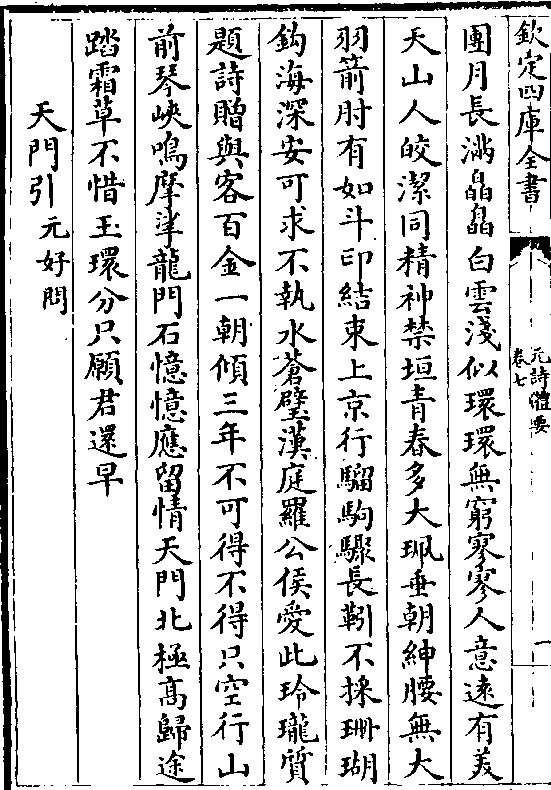 欽定四庫全書
元詩體要
卷七
一
團月長滿皛皛白雲淺似環環無窮寥寥人意遠有美
天山人皎潔同精神禁垣青春多大珮垂朝紳腰無大
羽箭肘有如斗印結束上京行騮駒驟長靷不採珊瑚
鈎海深安可求不執水蒼璧漢庭羅公侯愛此玲瓏質
題詩贈與客百金一朝傾三年不可得不得只空行山
前琴峽鳴摩挲龍門石憶憶應留情天門北極高歸途
踏霜草不惜玉環分只願君還早
天門引元好問